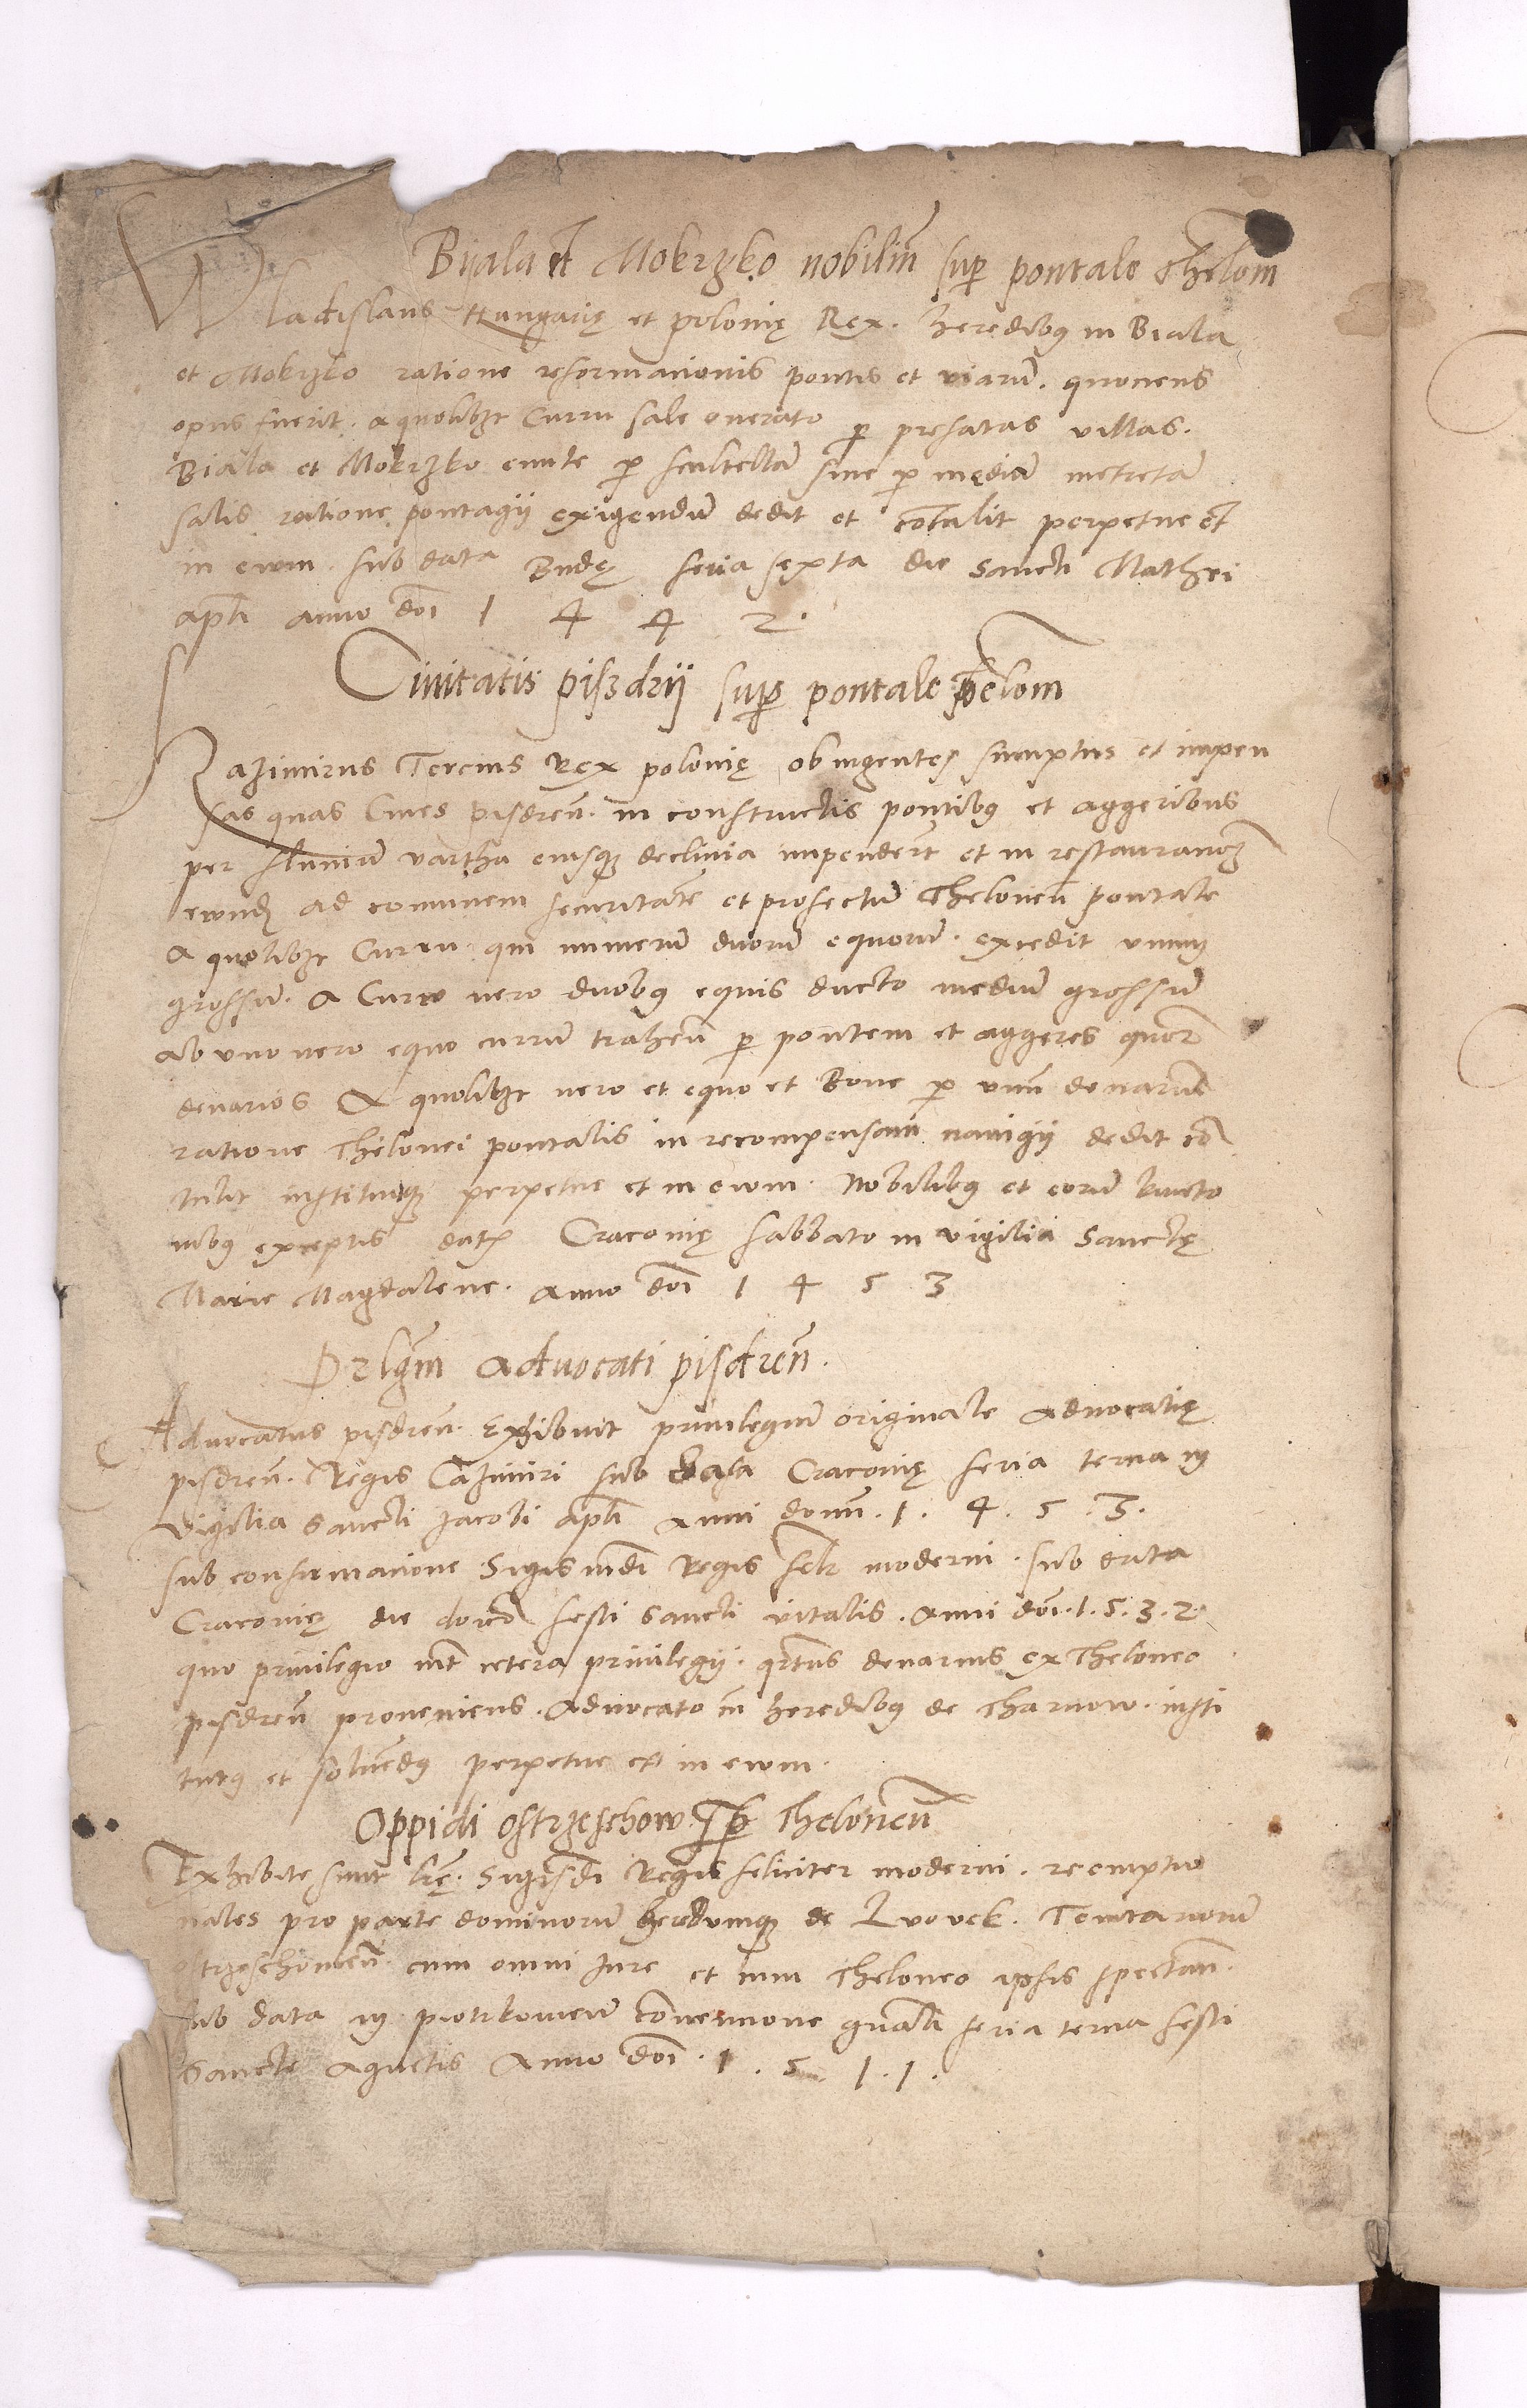 Byala et Mokrzko nobiliū sup pontale Thelom
Wladislaus Hungarię et polonię Rex. heredibꝯ in Biala
et Mokrzko ratione reformacionis pontis et viarū. quociens
opus fuerit. a quolibꝫt Curru sale onerato ꝑ prefatas villas.
Biala et Mokrzko eunte ꝑ scultellā siue ꝑ mediā metretā
salis ratione pontagij exigendū dedit et cōtulit perpetue et
in ewm. sub data Budę feria sexta die Sancti Mathei
apli anno doi 1 4 4 2.
Ciuitatis piszdrij sup pontale thelom
Kazimirus Tercius Rex polonię ob ingentes sumptus et impen
sas quas Ciues pisdreñ. in constructis pontibꝯ et aggeribus
per fluuiū vartha eiusqꝫ decliuia impenderūt et in restauranoꝫ
eornd ad comunem securitatē et profectū Theloneū pontale
a quolibꝫt Curru qui numerū duorū equorū. excedit vnum
grossū. a Curru vero duobꝯ equis ducto mediū grossū
ab vno vero equo currū traheñ ꝑ pontem et aggeres quor
denarios A quolibꝫt vero et equo et Boue ꝑ vnū denariū
ratione Thelonei pontalis in recompensam nauigij dedit cō
tulit instituitqꝫ perpetue et in ewm. Nobilibꝯ et eorū
exceptis dat Cracouię sabbato in vigilia Sanctę
Marie Magdalene. anno doi 1 4 5 3
Prlgm aduocati pisdreñ.
Aduocatus pisdreñ. Exhibuit priuilegiū originale aduocatię
pisdreñ. Regis Cazimiri sub data Cracouię feria tercia in
vigilia Sancti Jacobi apli Anni domi. 1. 4. 5. 3.
sub confirmacione Sigismdi Regis felr moderni. sub data
Cracouię die dominica festi Sancti vitalis. Anni doi. 1. 5. 3. 2.
quo priuilegio int cetera priuilegij. qrtus denarius ex Theloneo
pisdreñ proueniens. Aduocato cū heredibꝯ de Tharnow. insti
tutꝯ et soluedꝯ perpetue et in ewm.
Oppidi Ostrzeschow Sup Theloneū
Exhibite sunt lrę. Sigisdi Regis feliciter moderni. reemptio
nales pro parte dominorū heredumqꝫ de Lvovek. Tenutariorū
strzeschouieñ. cum omni Jure et cum Theloneo ipsis spectañ.
sub data in piotrkouieñ cōuencione gnali feria tercia festi
Sancte Agnetis Anno doi. 1. 5. 1. 1.